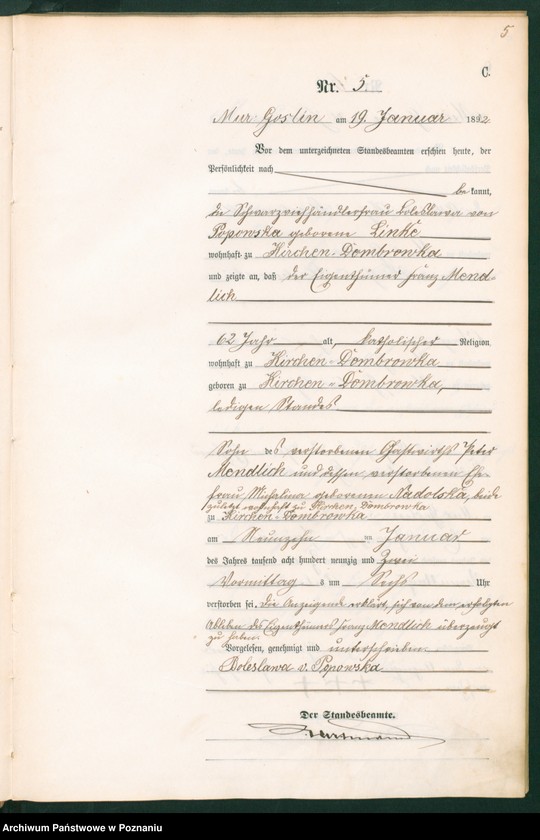 5
C.
Nr. 5
Mur. Goslin am 19. Januar 1892.
Vor dem unterzeichneten Standesbeamten erschien heute, der
Persönlichkeit nach
bekannt,
die Schwarzviehhändlerfrau Boleslawa von
Popowska geborene Linke
wohnhaft zu Kirchen-Dombrowka
und zeigte an, daß der Eigenthümer Franz Mend-
lich
62 Jahr alt, katholischer Religion,
wohnhaft zu Kirchen-Dombrowka
geboren zu Kirchen-Dombrowka,
ledigen Standes
Sohn des verstorbenen Gastwirths Peter
Mendlich und dessen verstorbenen Ehe-
frau Michalina geborenen Nadolska, beide
zuletzt wohnhaft zu Kirchen Dombrowka
zu Kirchen-Dombrowka
am Neunzehn ten Januar
des Jahres tausend acht hundert neunzig und Zwei
Vormittags um Sechs Uhr
verstorben sei. Die Anzeigende erklärt, sich von dem erfolgten
Ableben des Eigenthümers Franz Mendlich überzeugt
zu haben.
Vorgelesen, genehmigt und unterschrieben
Boleslawa v. Popowska
Der Standesbeamte.
Archiwum Państwowe w Poznaniu